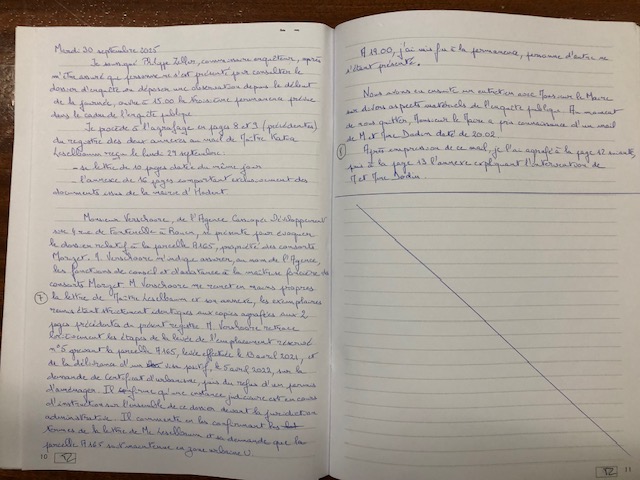 Mardi 30 septembre 2025
Je soussigné Philippe Zoller, commissaire enquêteur, après
m'être assuré que personne ne s'est présenté pour consulter le
dossier d'enquête ou déposer une observation depuis le début
de la journée, ouvre à 15.00 la troisième permanence prévue
dans le cadre de l'enquête publique
Je procède à l'agrafage en pages 8 et 9 (précédentes)
du registre des deux annexes au mail de Maître Katia
reçu le lundi 29 septembre :
- sa lettre de 10 pages datée du même jour
- l'annexe de 16 pages comportant exclusivement des
documents issus de la mairie d'
Monsieur Verschoore, de l'Agence Développement
sur 4 rue de Fontenelle à Rouen, se présente pour évoquer
le dossier relatif à la parcelle A165, propriété des consorts
M. Verschoore m'indique assurer, au nom de l'Agence,
les fonctions de conseil et d'assistance à la maîtrise foncière des
consorts M. Verschoore me remet en mains propres
7 la lettre de Maître et son annexe, les exemplaires
remis étant strictement identiques aux copies agrafées aux 2
pages précédentes du présent registre. M. Verschoore retrace
les étapes de la levée de l'emplacement réservé
n°5 grevant la parcelle A165, levée effectuée le 13 avril 2021, et
de la délivrance d'un positif, le 5 avril 2022, sur la
demande de certificat d'urbanisme, puis du refus d'un permis
d'aménager. Il confirme qu'une instance judiciaire est en cours
d'instruction sur l'ensemble de ce dossier devant la juridiction
administrative. Il commente en les confirmant les
termes de la lettre de Me et sa demande que la
parcelle A165 soit maintenue en zone urbaine U.
10
A 19.00, j'ai mis fin à la permanence, personne d'autre ne
s'étant présenté.
Nous avons eu ensuite un entretien avec Monsieur le Maire
sur divers aspects matériels de l'enquête publique. Au moment
de nous quitter, Monsieur le Maire a pris connaissance d'un mail
de M et Mme Dadin daté de 20.02
8 Après impression de ce mail, je l'ai agrafé à la page 12 suivante
puis à la page 13 l'annexe expliquant l'intervention de
M et Mme Dadin.
11